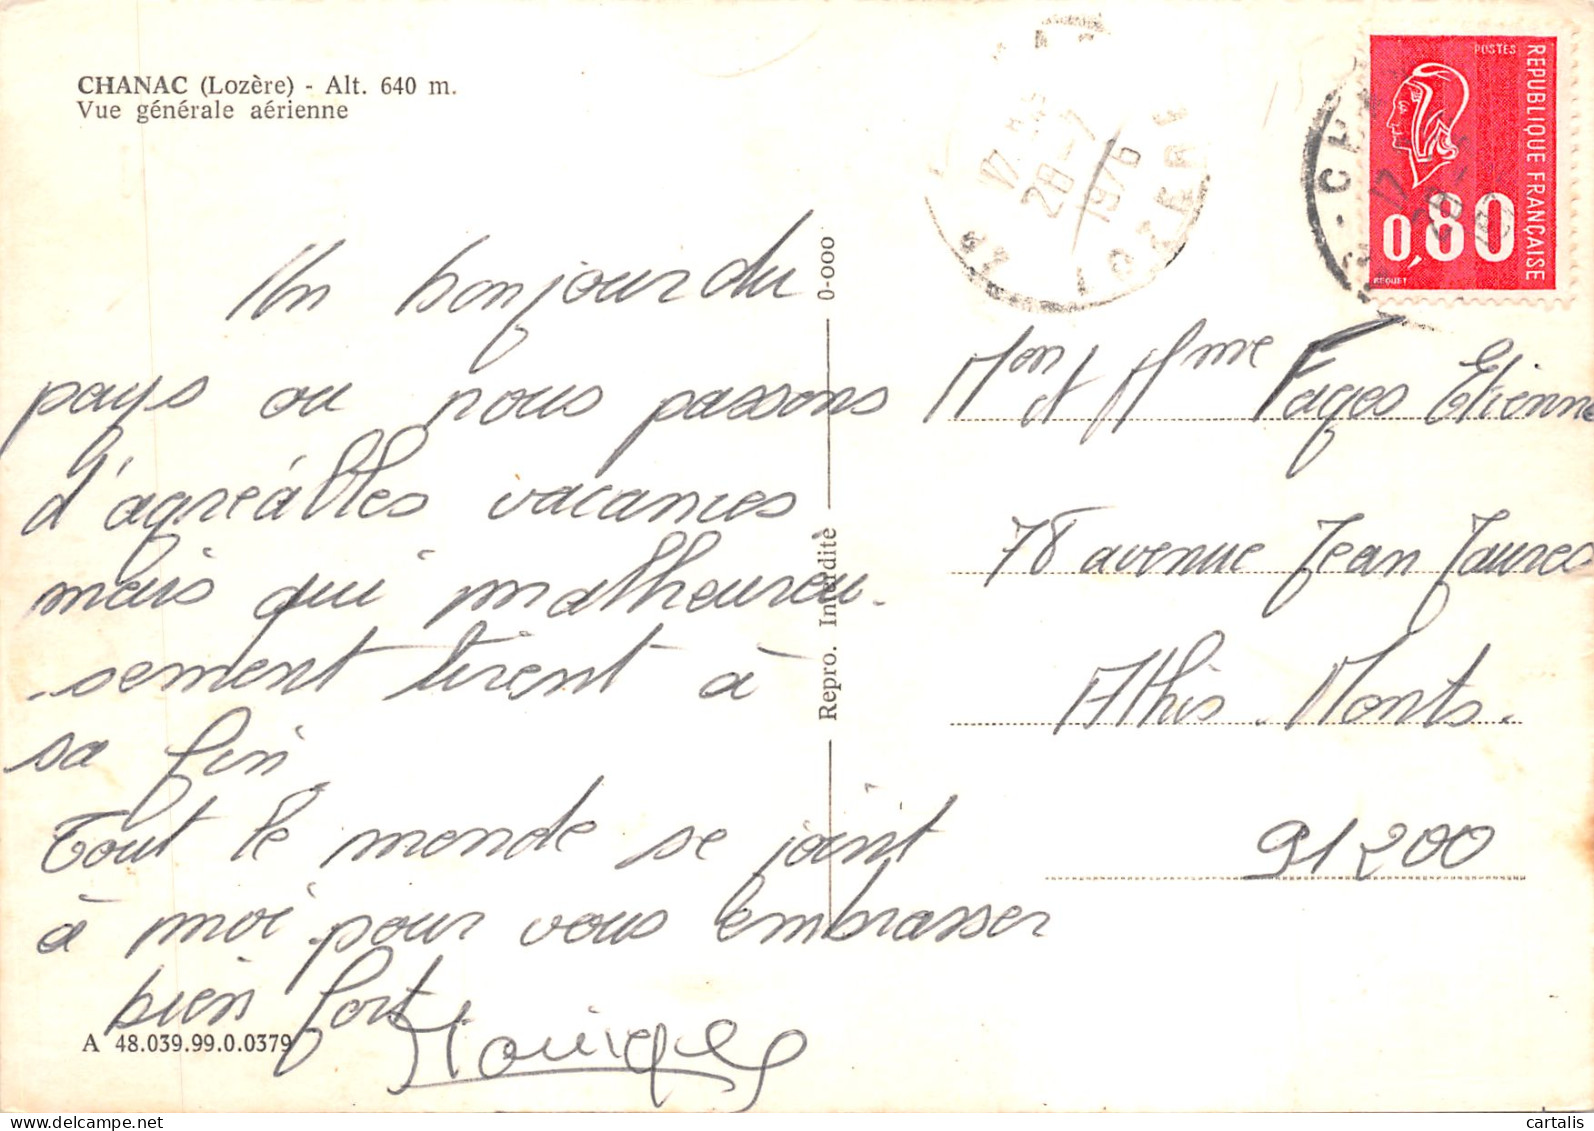 CHANAC (Lozère) - Alt. 640 m.
Vue générale aérienne
Un bonjour du
pays ou nous passons
d'agréables vacances
mais qui malheureu-
-sement tirent à
sa fin.
Tout le monde se joint
à moi pour vous embrasser
bien fort
A 48.039.99.0.0379
Repro. Interdite
0-000
17
28-7
1976
LOZERE
POSTES
REPUBLIQUE FRANÇAISE
0,80
BEQUET
Mon et Mme Fages Etienne
78 avenue Jean Jaures
Athis-Monts.
91200
cartalis